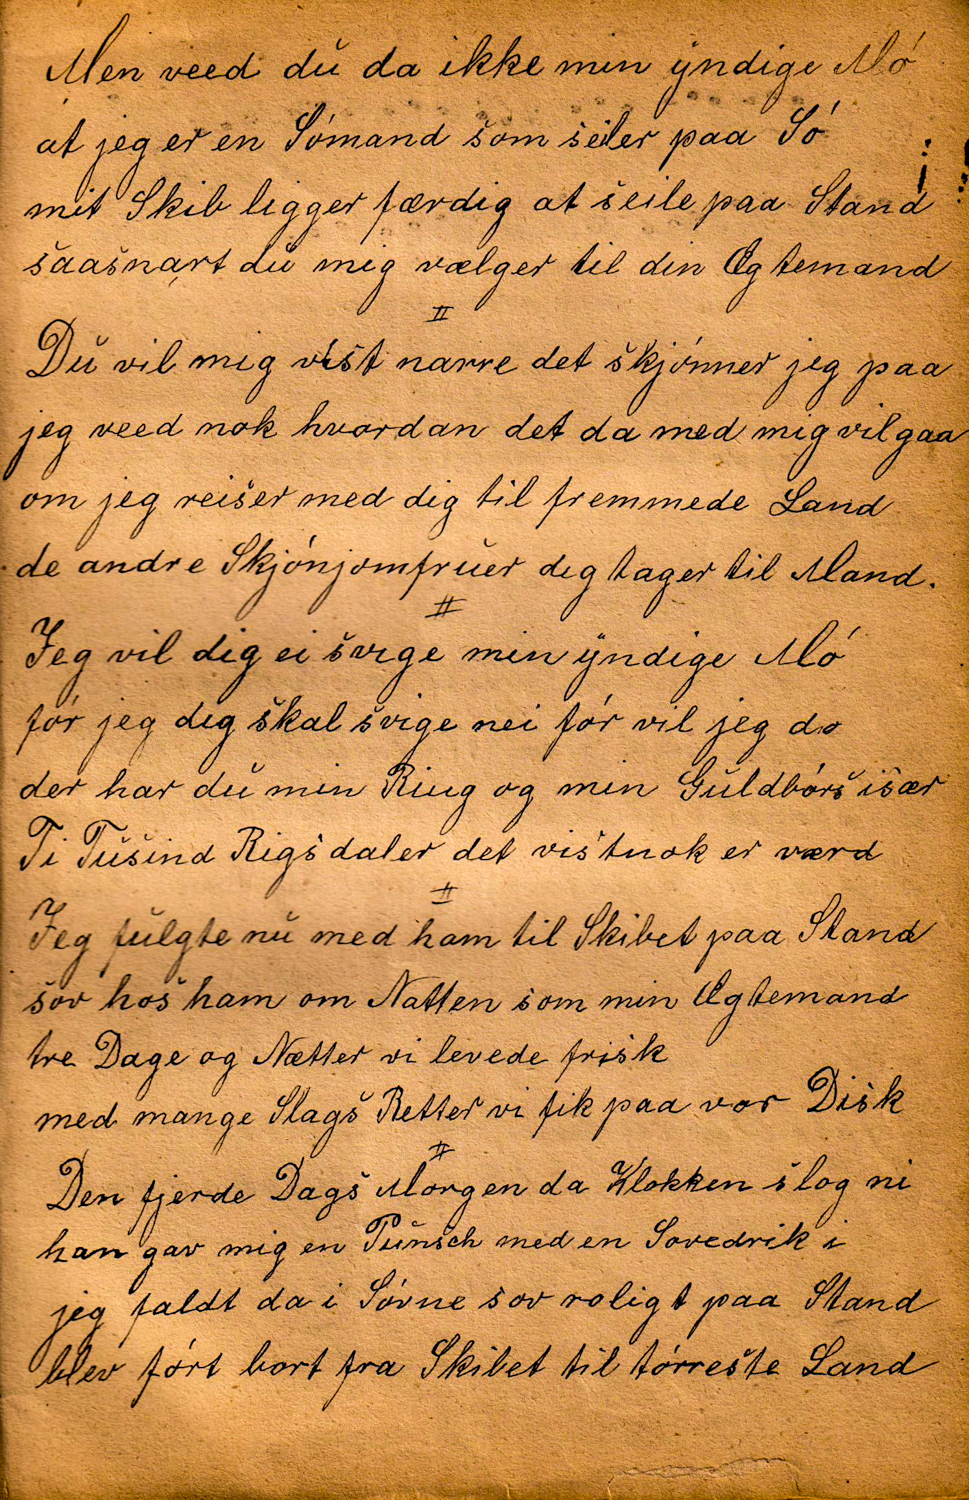 Men veed du da ikke min yndige Mó
at jeg er en Sómand som seiler paa Só
mit Skib ligger færdig at seile paa Stand
saasnart du mig vælger til din Ægtemand
II
Du vil mig vist narre det skjónner jeg paa
jeg veed nok hvordan det da med mig vil gaa
om jeg reiser med dig til fremmede Land
de andre Skjónjomfruer dig tager til Mand.
II
Jeg vil dig ei svige min yndige Mó
fór jeg dig skal svige nei fór vil jeg do
der har du min Ring og min Guldbórs især
Ti Tusind Rigsdaler det vistnok er værd
II
Jeg fulgte nu med ham til Skibet paa Stand
sov hos ham om Natten som min Ægtemand
tre Dage og Nætter vi levede frisk
med mange Slags Retter vi fik paa vor Disk
II
Den fjerde Dags Morgen da Klokken slog ni
han gav mig en Punsch med en Sovedrik i
jeg faldt da i Sóvne sov roligt paa Stand
blev fórt bort fra Skibet til tórreste Land